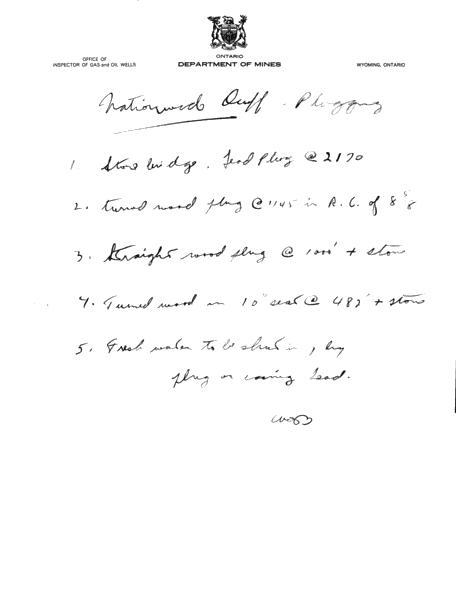 ONTARIO
OFFICE OF
INSPECTOR OF GAS and OIL WELLS
DEPARTMENT OF MINES
WYOMING, ONTARIO
Nationwide Duff - Plugging
1. Stone bridge. Lead Plug @ 2170
2. turned wood plug @ 1145 in R.C. of 8 5/8
3. Straight wood plug @ 1000' + stone
4. Turned wood in 10" seat @ 482' + stone
5. Fresh water to be shut in, by
plug or casing lead.